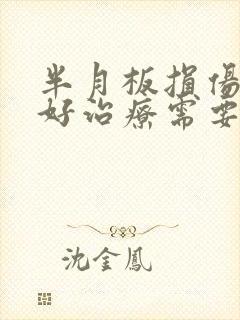 半月板損傷
好治療需要
沈金鳳